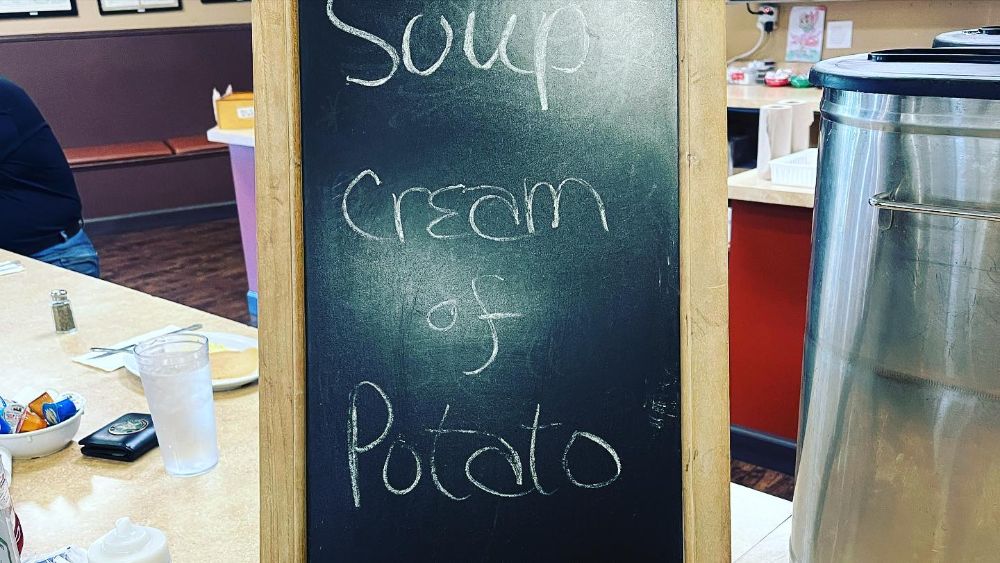 Soup
Cream
of
Potato